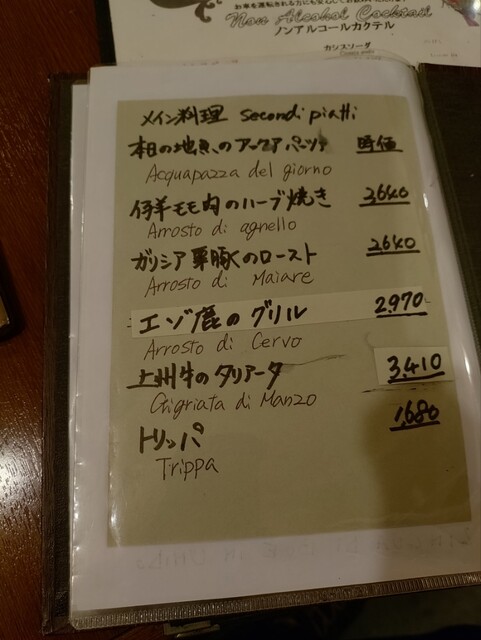 お車を運転される方にも安心してお飲みいただけます
Non Alcohol Cocktail
ノンアルコールカクテル
カシスソーダ
メイン料理 secondi piatti
本日の地魚のアックアパッツァ 時価
Acquapazza del giorno
仔羊モモ肉のハーブ焼き 3,640
Arrosto di agnello
ガリシア栗豚のロースト 2,640
Arrosto di Maiare
エゾ鹿のグリル 2,970
Arrosto di Cervo
上州牛のタリアータ 3,410
Grigriata di Manzo
トリッパ 1,680
Trippa